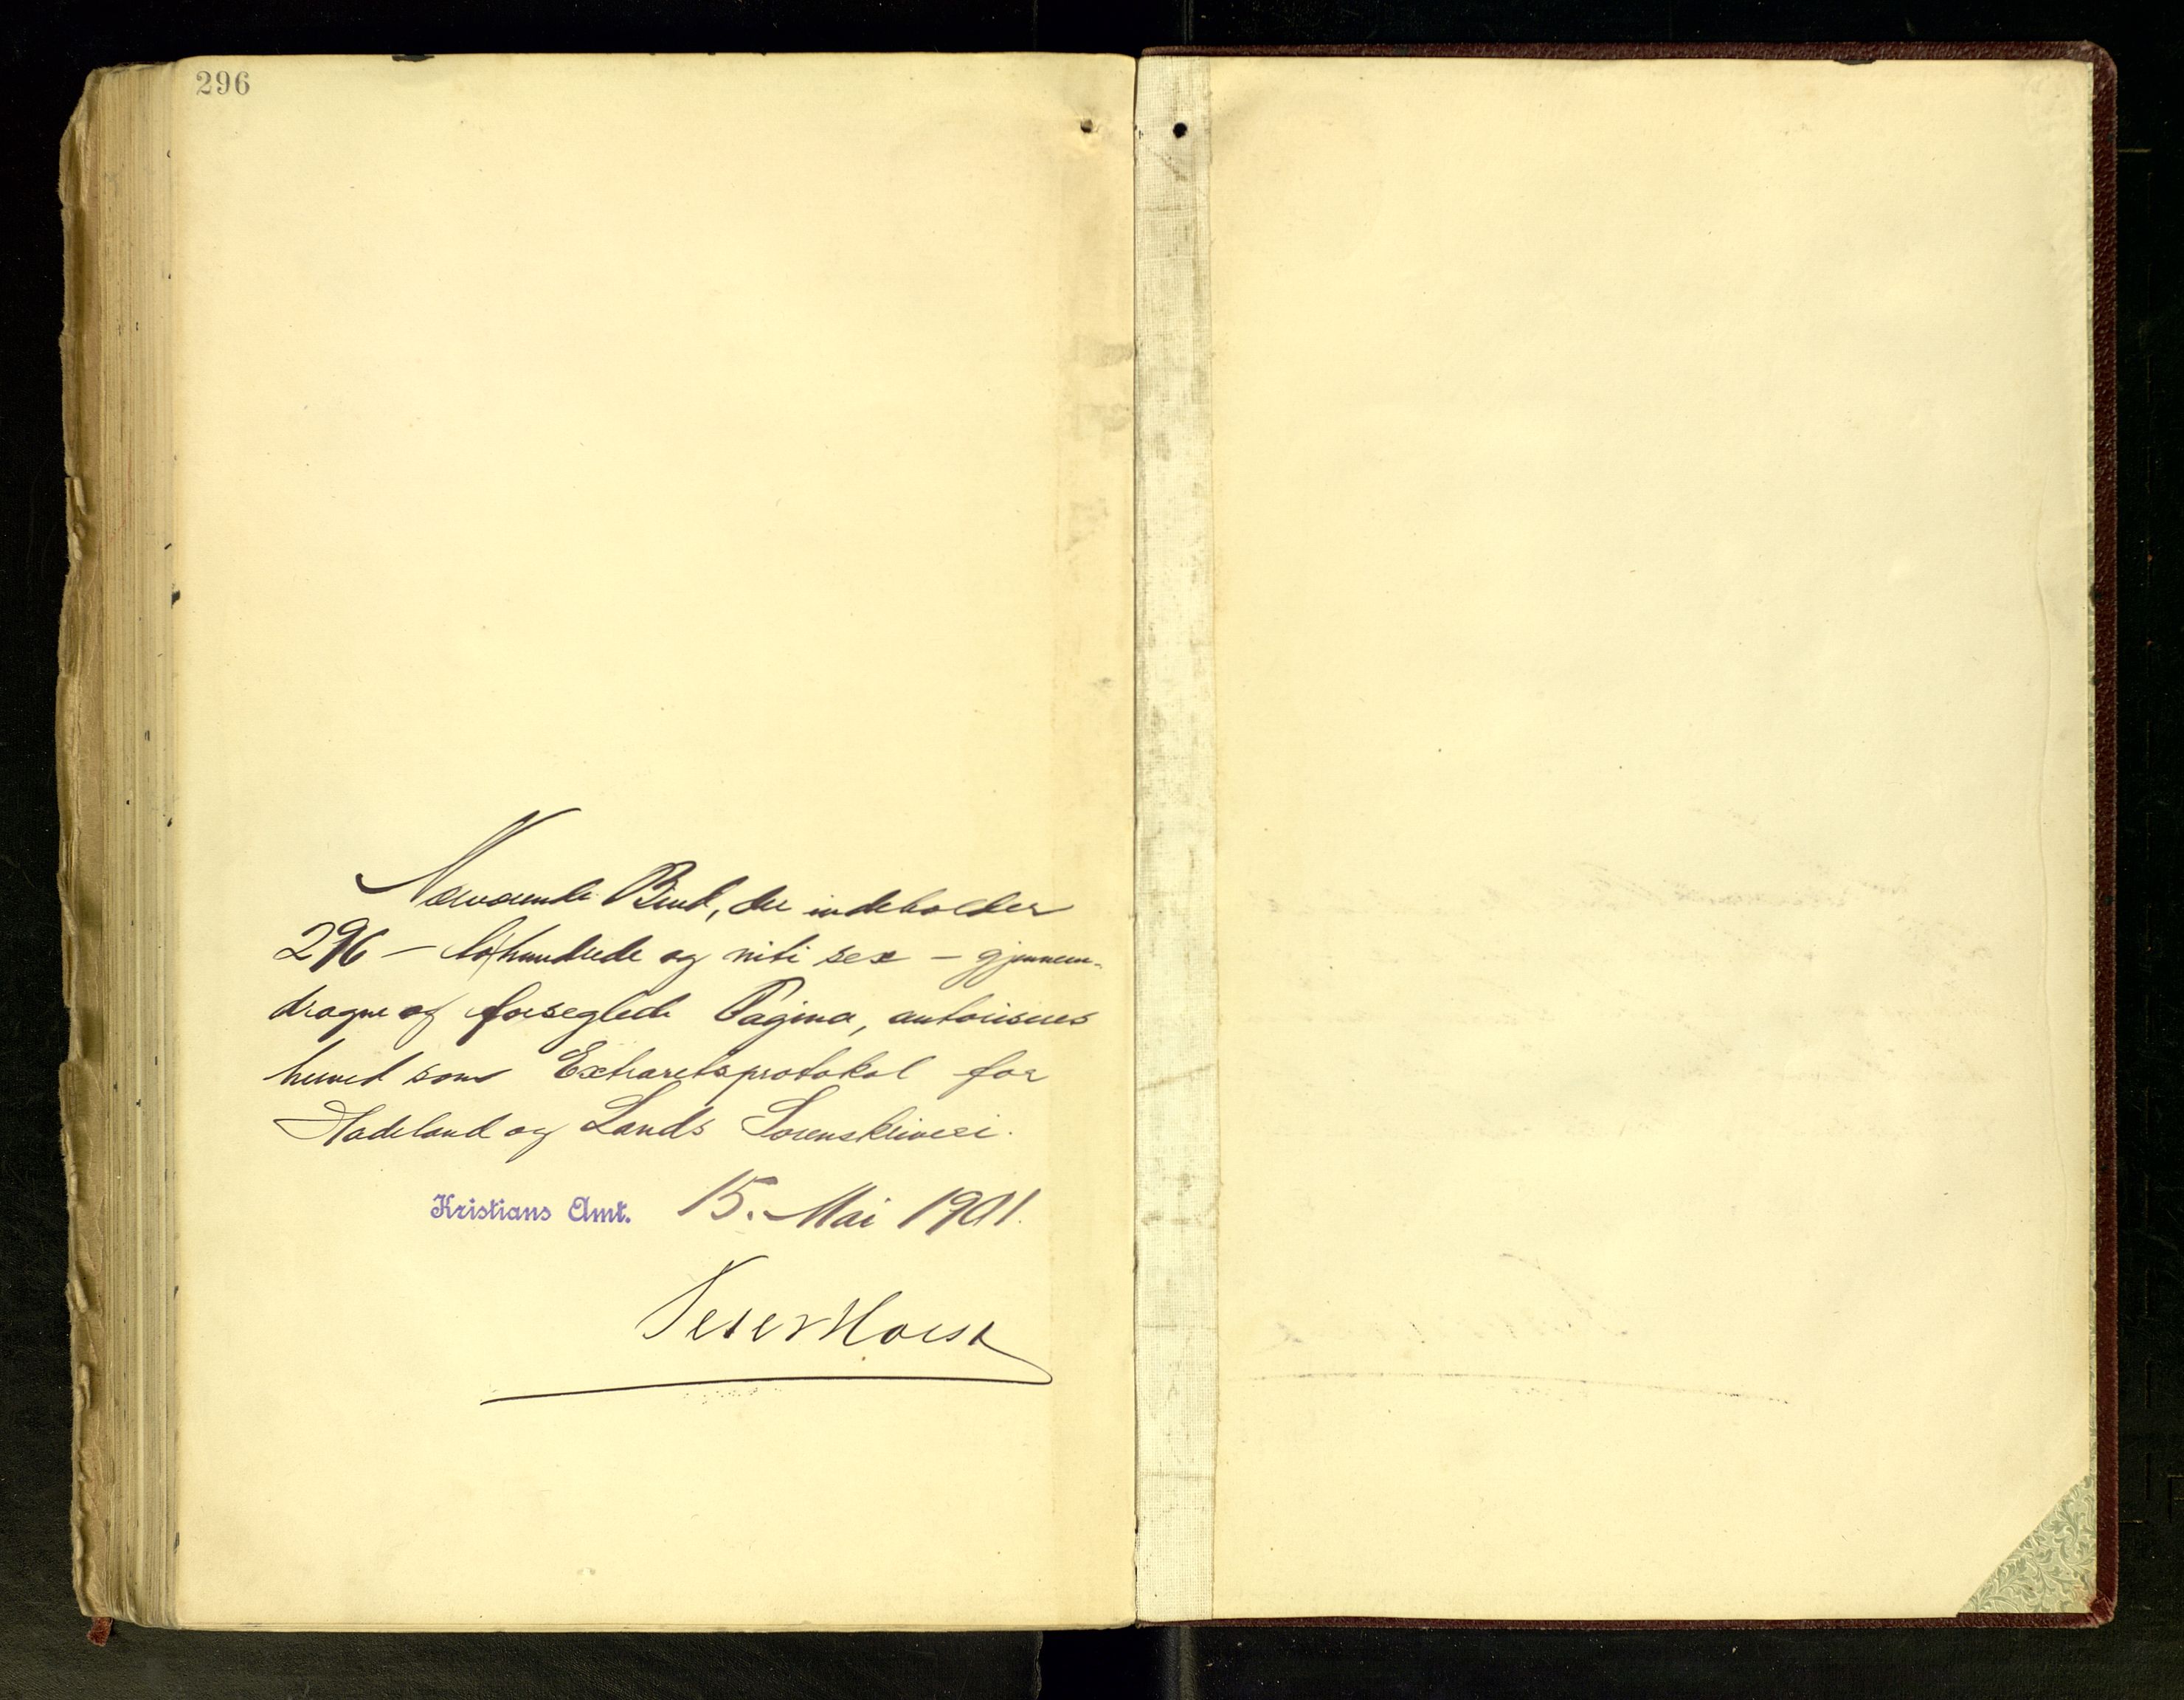 296
Nærværende Bind, der indeholder
296 – tohundrede og niti sex – gjennem-
dragne og forseglede Pagina, autoriseres
herved som Extraretsprotokol for
Hadeland og Lands Sorenskriveri.
Kristians Amt. 15. Mai 1901.
Peter Holst